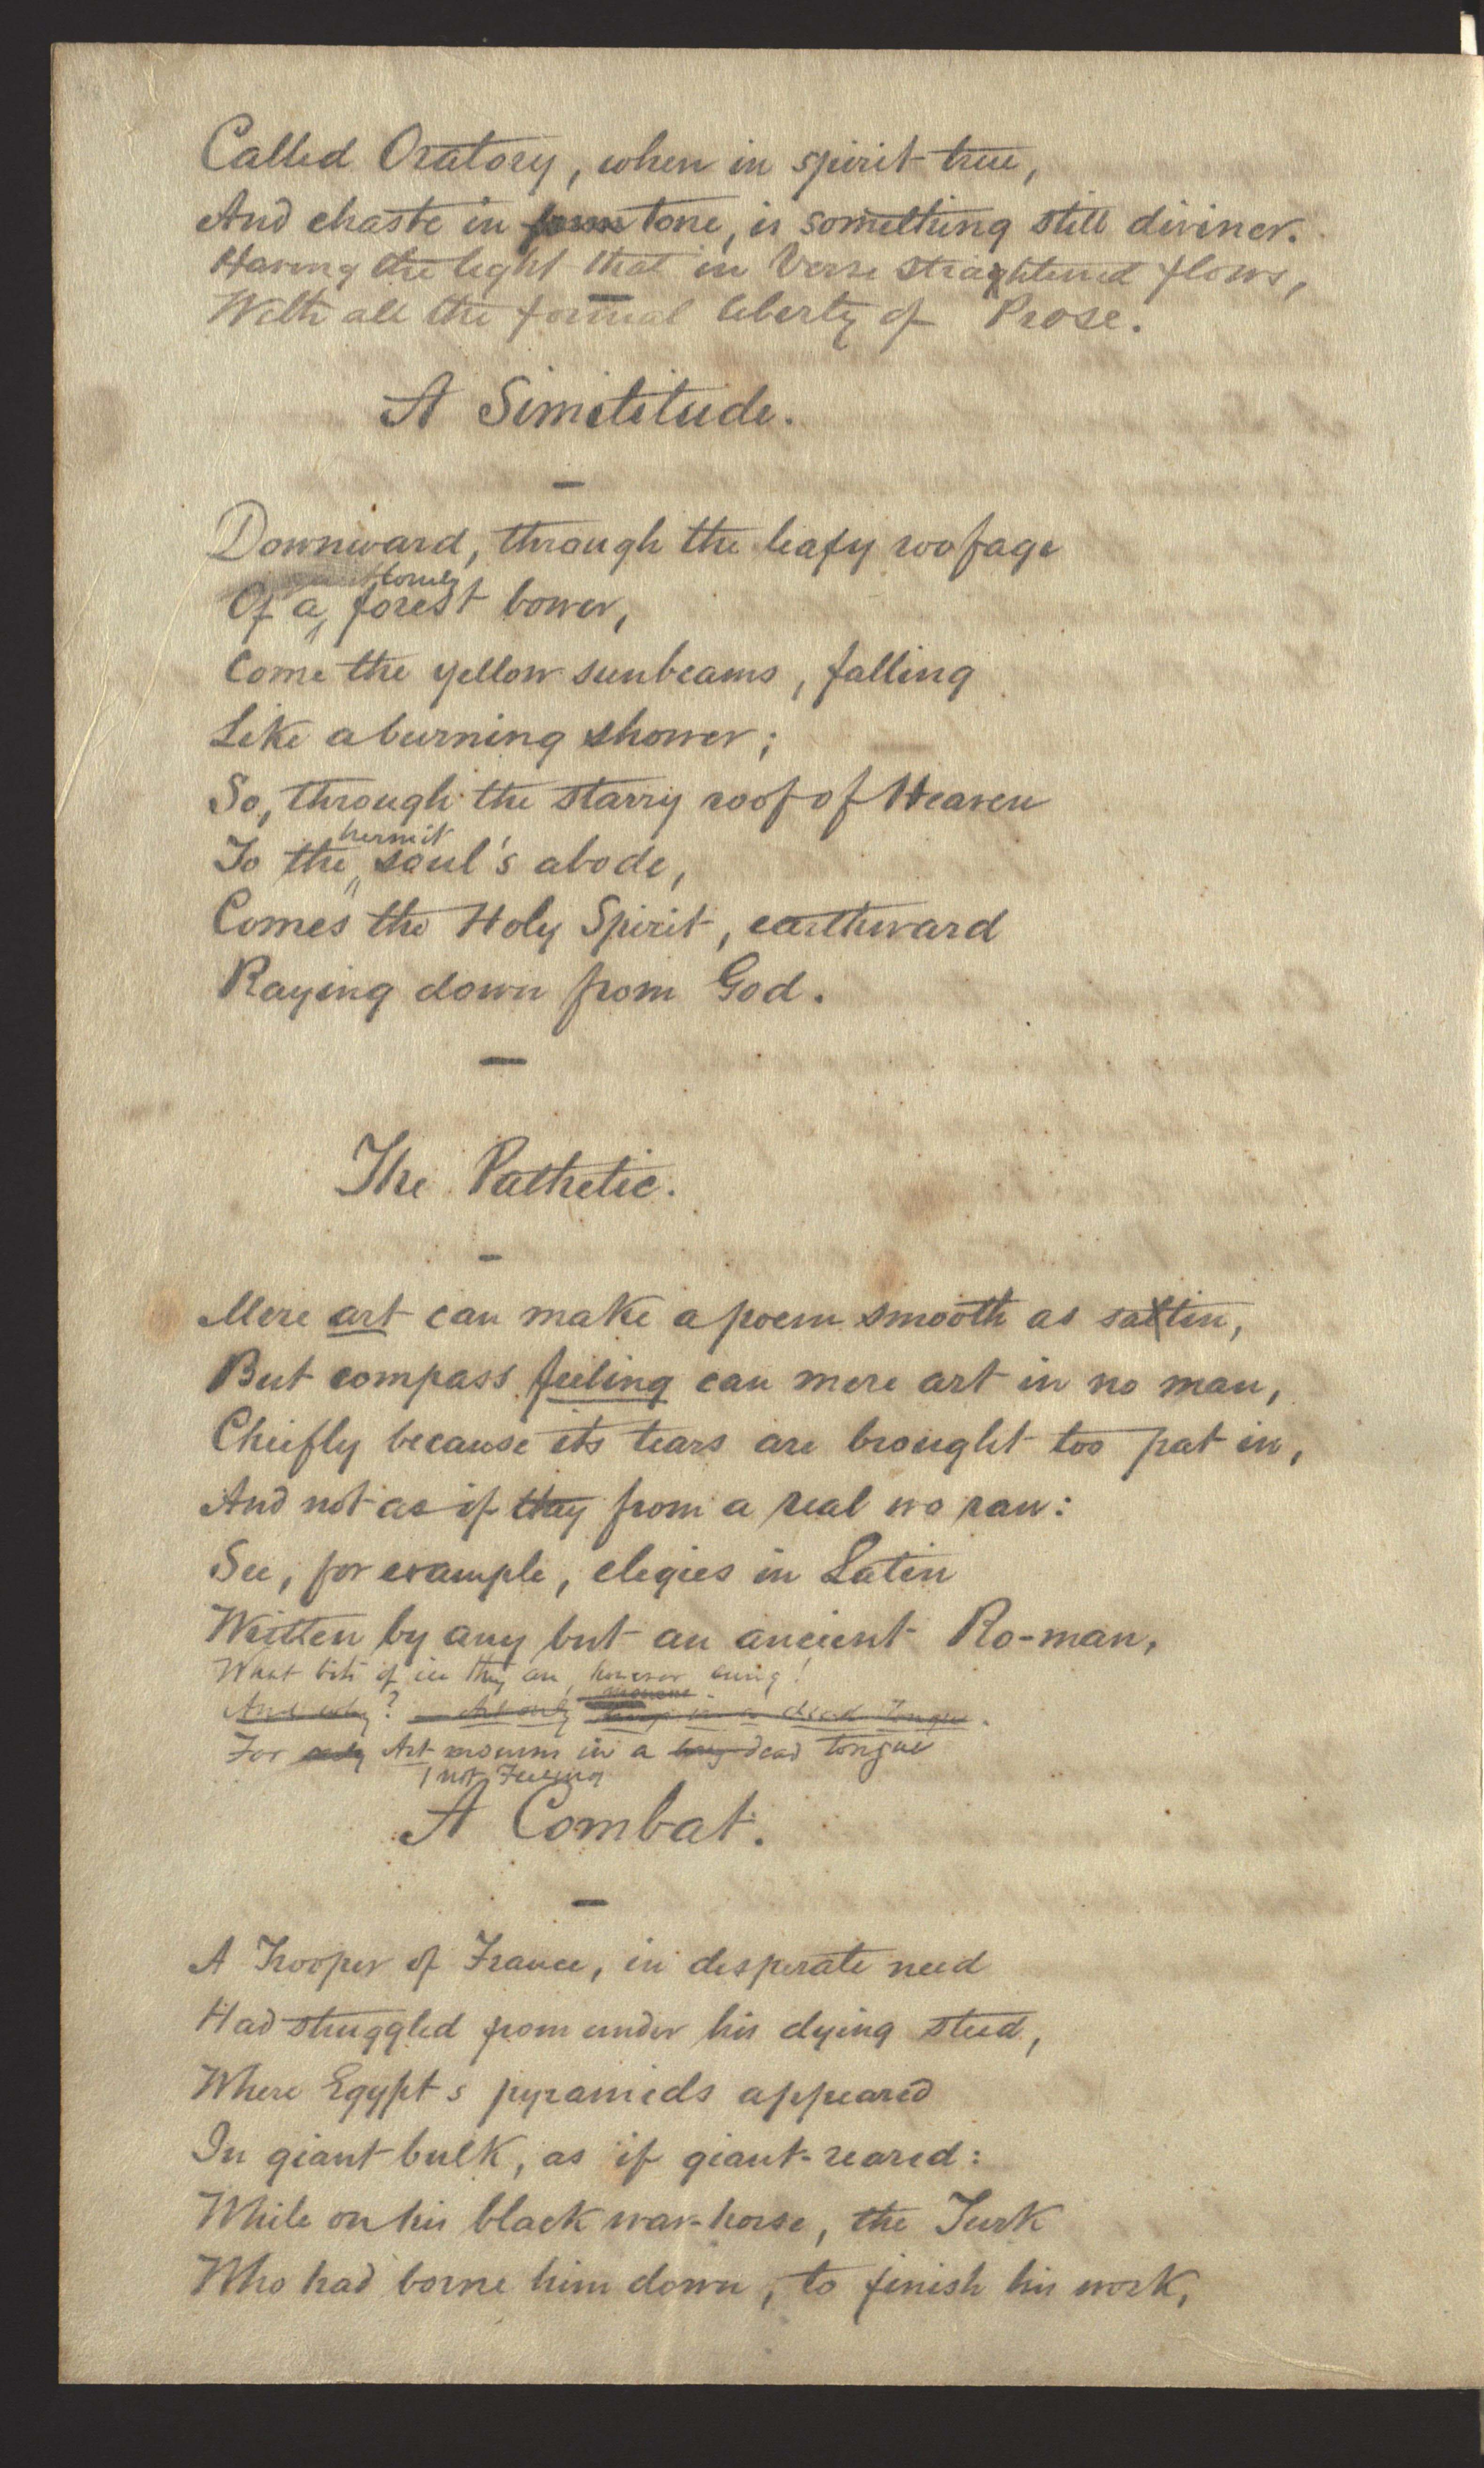 Called Oratory, when in spirit true,
And chaste in form tone, is something still diviner.
Having the light that in Verse straightened flows,
With all the formal liberty of Prose.
A Similitude.
Downward, through the leafy roofage
lonely
Of a forest bower,
Come the yellow sunbeams, falling
Like a burning shower;
So, through the starry roof of Heaven
hermit
To the soul's abode,
Comes the Holy Spirit, earthward
Raying down from God.
The Pathetic.
Mere art can make a poem smooth as sattin,
But compass feeling can mere art in no man,
Chiefly because its tears are brought too pat in,
And not as if they from a real wo ran:
See, for example, elegies in Latin
Written by any but an ancient Ro-man,
What bits of ice they are, however sung!
mourns
And why? Art only in a dead tongue.
For only Art mourns in a dead tongue
not Feeling
A Combat.
A Trooper of France, in desperate need
Had struggled from under his dying steed,
Where Egypt's pyramids appeared
In giant bulk, as if giant-reared:
While on his black war-horse, the Turk
Who had borne him down, to finish his work,